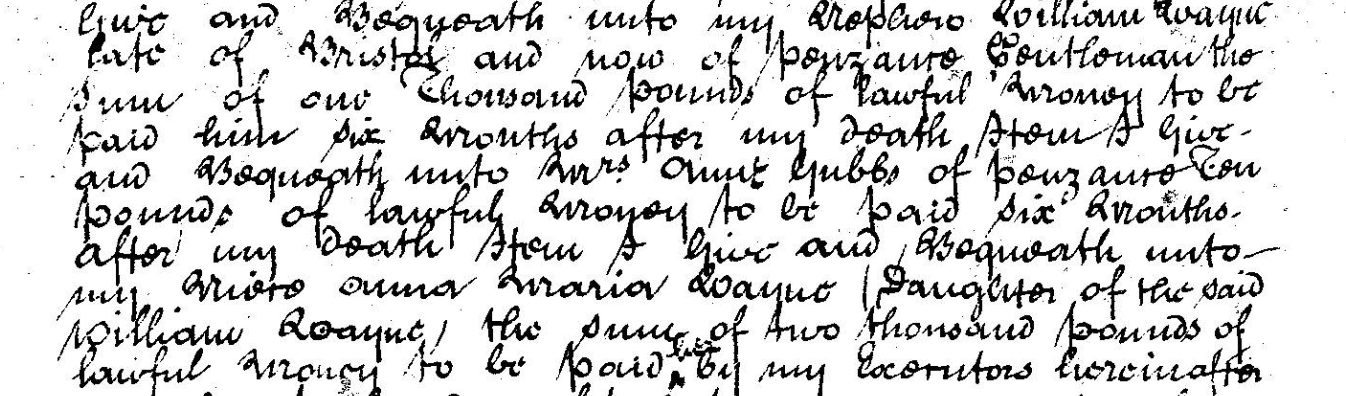 Give and Bequeath unto my Nephew William Wayne
late of Bristol and now of Penzance Gentleman the
Sum of one Thousand Pounds of lawful Money to be
paid him six Months after my death Item I Give-
and Bequeath unto Mrs. Anne Gubbs of Penzance Ten
pounds of lawful Money to be paid six Months-
after my death Item I Give and Bequeath unto-
my Niece Anna Maria Wayne (Daughter of the said
William Wayne) the sum of two thousand pounds of
lawful Money to be paid her by my Executors hereinafter